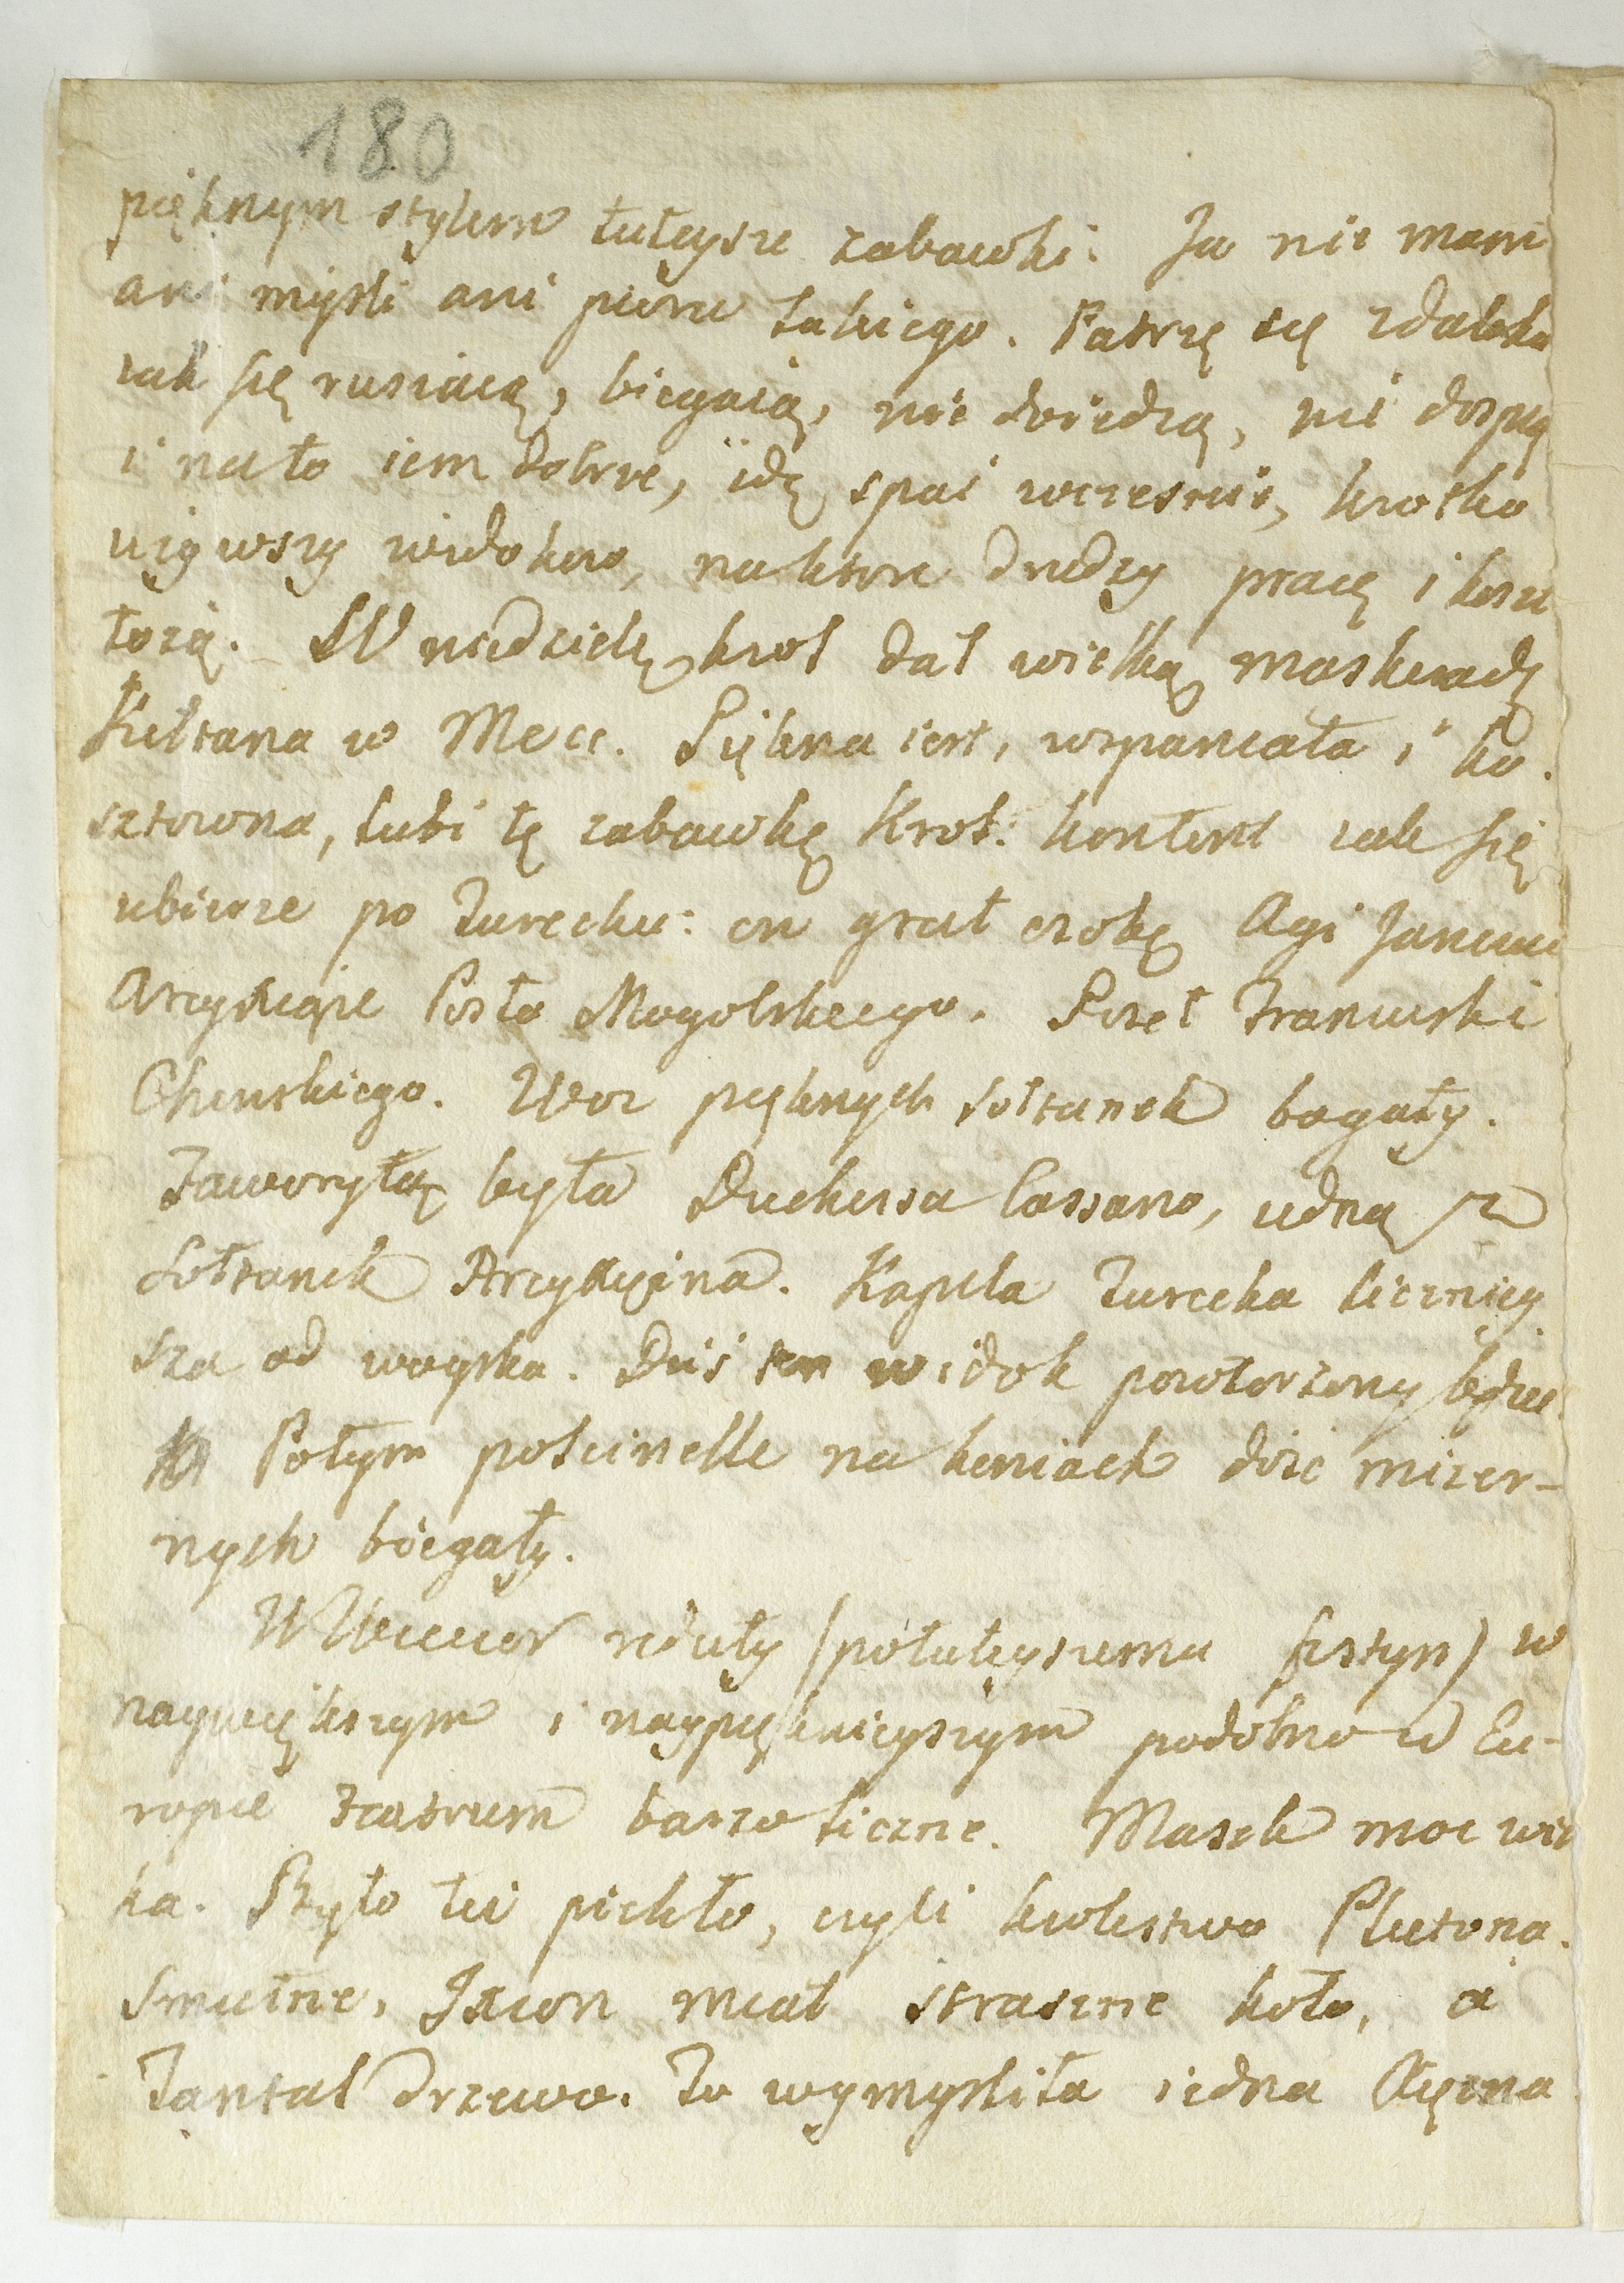 180
pięknym stylem tuteysze zabawki. Ja nie mam
ani myśli ani piora takiego. Patrzę się zdaleka
iak się ruszaią, biegaią, nie dojedzą, nie dospią
i na to iem dobrze, idę spać wczesnie, krotko
używszy widokow, na ktore drudzy pracę i koszt
łożą. W niedzielę krol dał wielką maskeradę
Sułtana w Mecc. Piękna iest, wspaniała i ko.
sztowna, lubi tę zabawkę Krol: kontent iak się
ubierze po Turecku: on grał rolę Agi Janczar
Arcyxiąże Posła Mogolskiego. Poseł Francuski
Chinskiego. Woz pięknych sołtanek bogaty.
Faworytą była Duchessa Cassano, iedną z
Sołtanek Arcyxiężna. Kapela Turecka liczniey
sza od woyska. Dziś ten widok powtorzony będzie.
Potym policinelle na koniach dość mizer-
nych biegały.
W Wieczor reduty (potuteyszemu festyn) w
naywiększym i naypięknieyszym podobno w Eu-
ropie Teatrum barzo liczne. Masek moc wiel
ka. Było tu piekło, czyli krolestwo Plutona.
Smutne, Ixion miał straszne koło, a
Tantal drzewo. To wymysliła iedna Xiężna